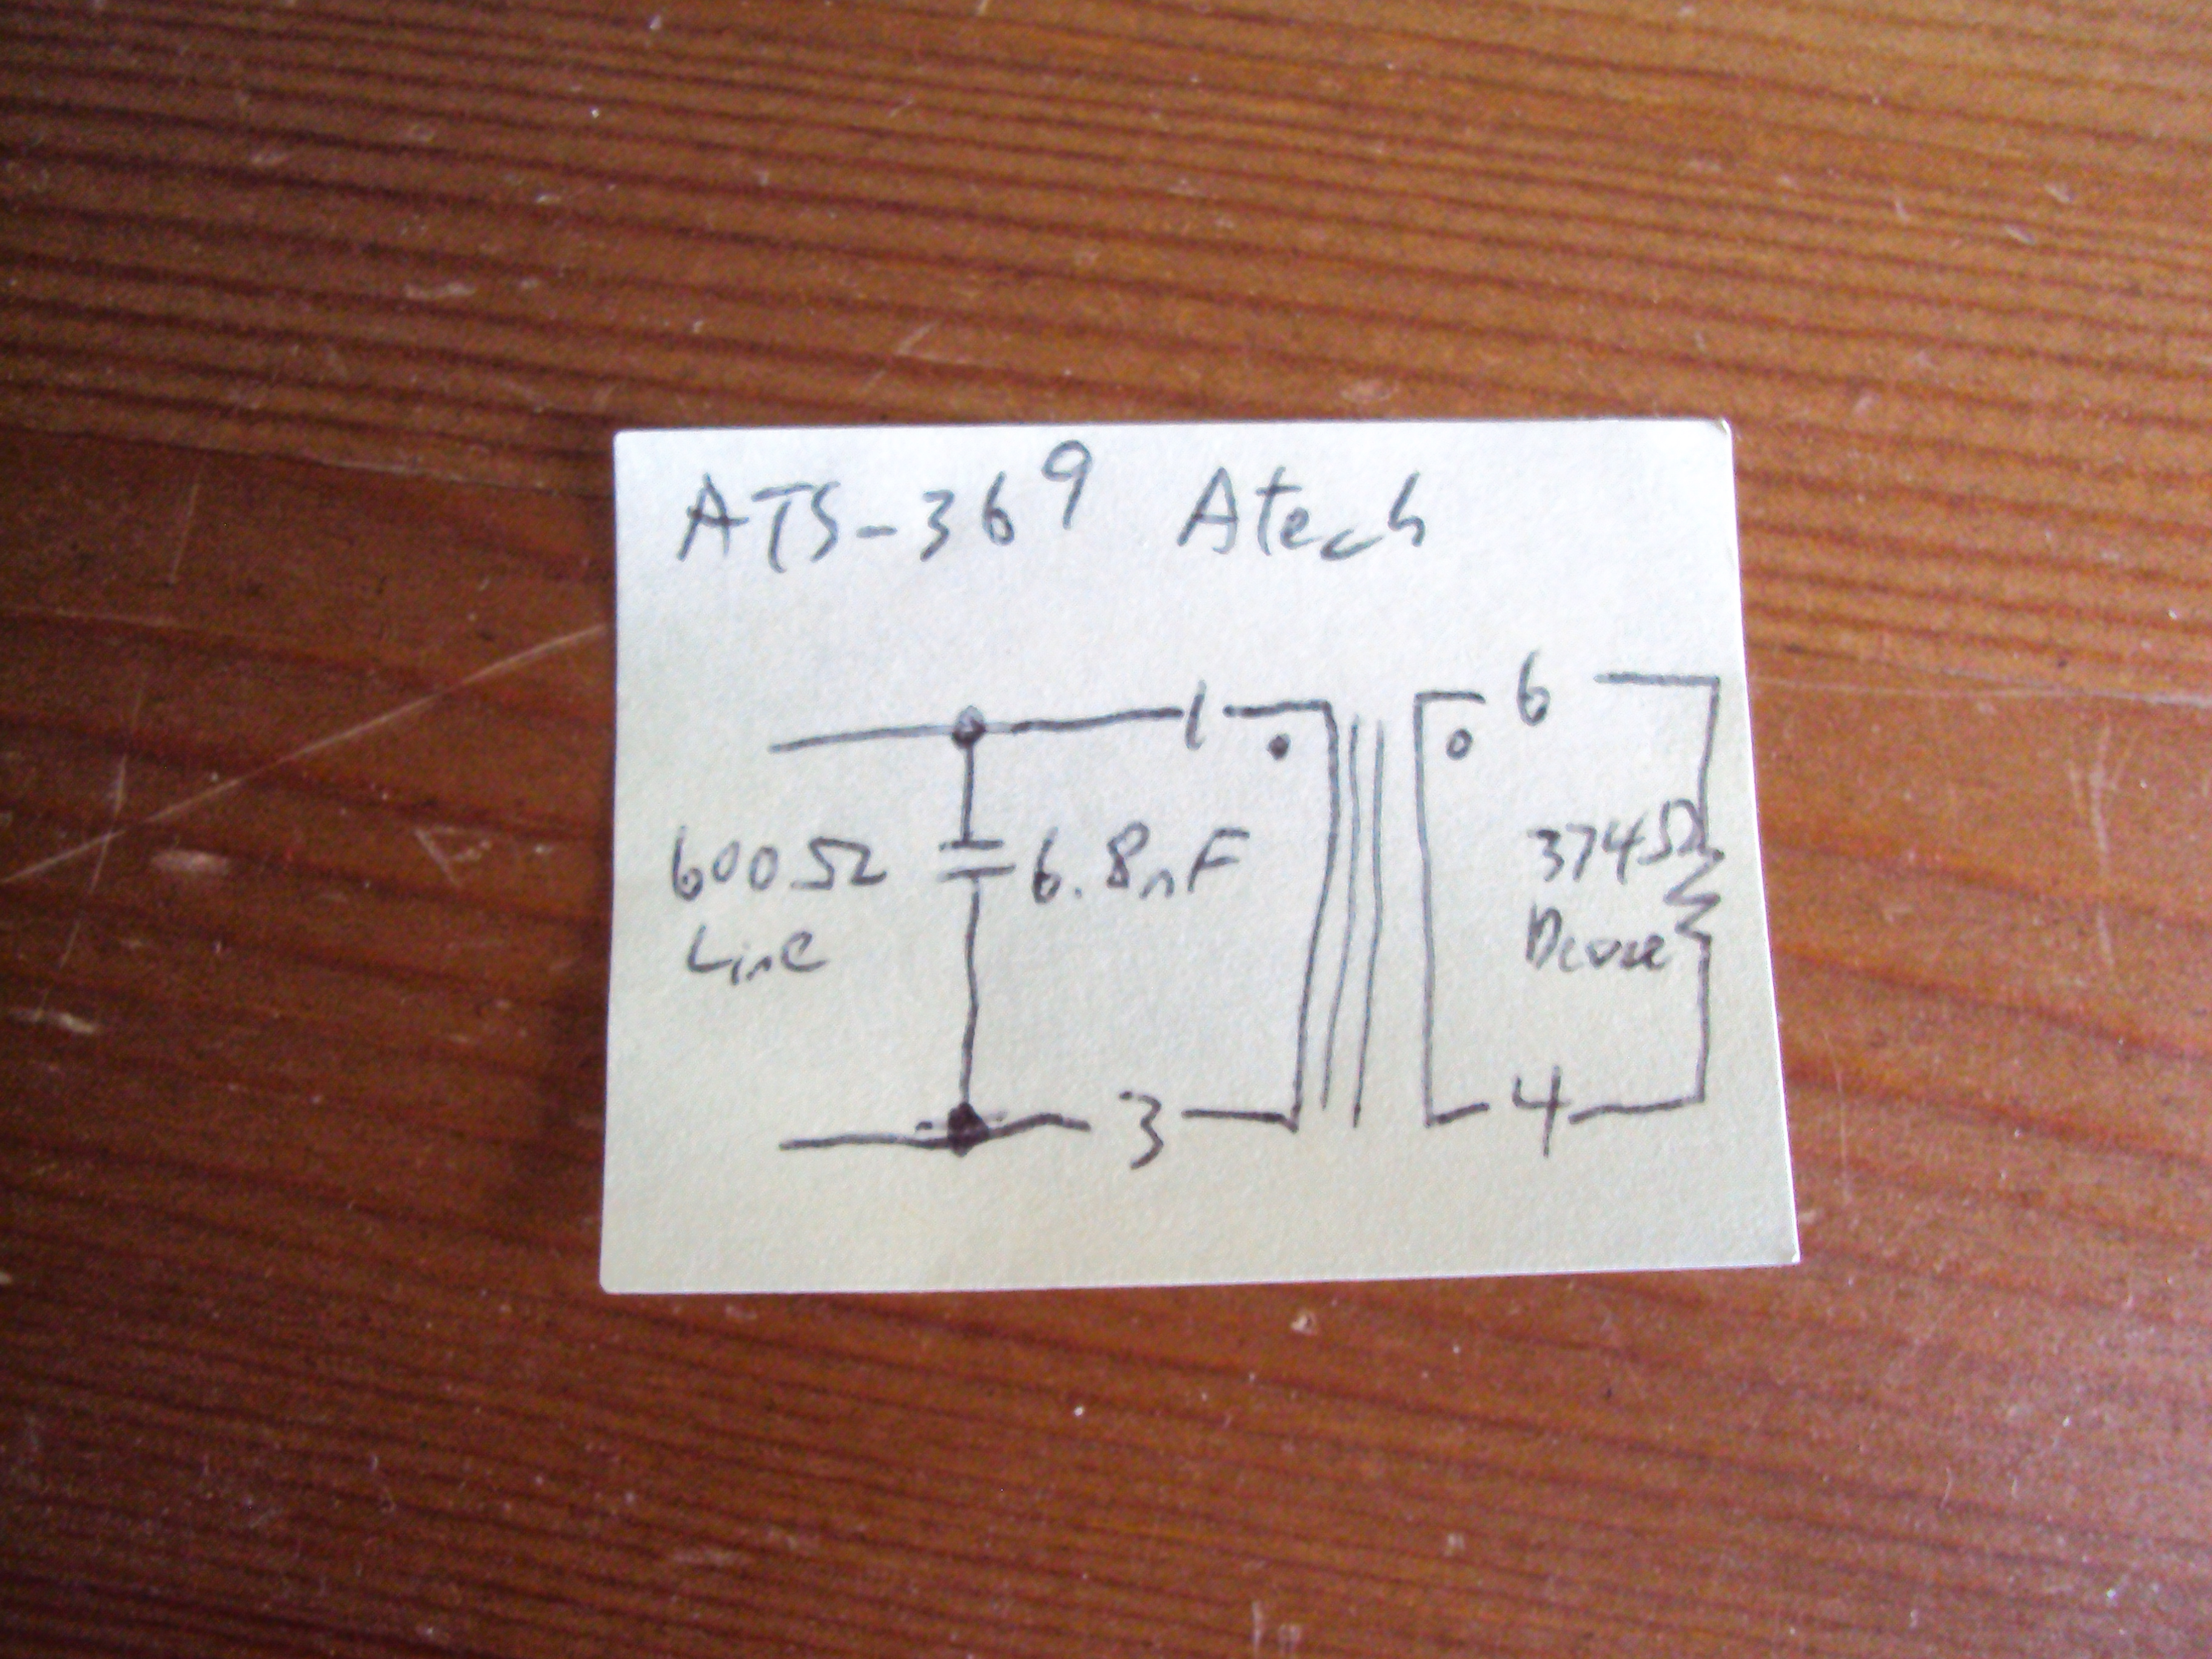 ATS-369 Atech
1
6
600Ω
Line
6.8nF
374Ω
Device
3
4